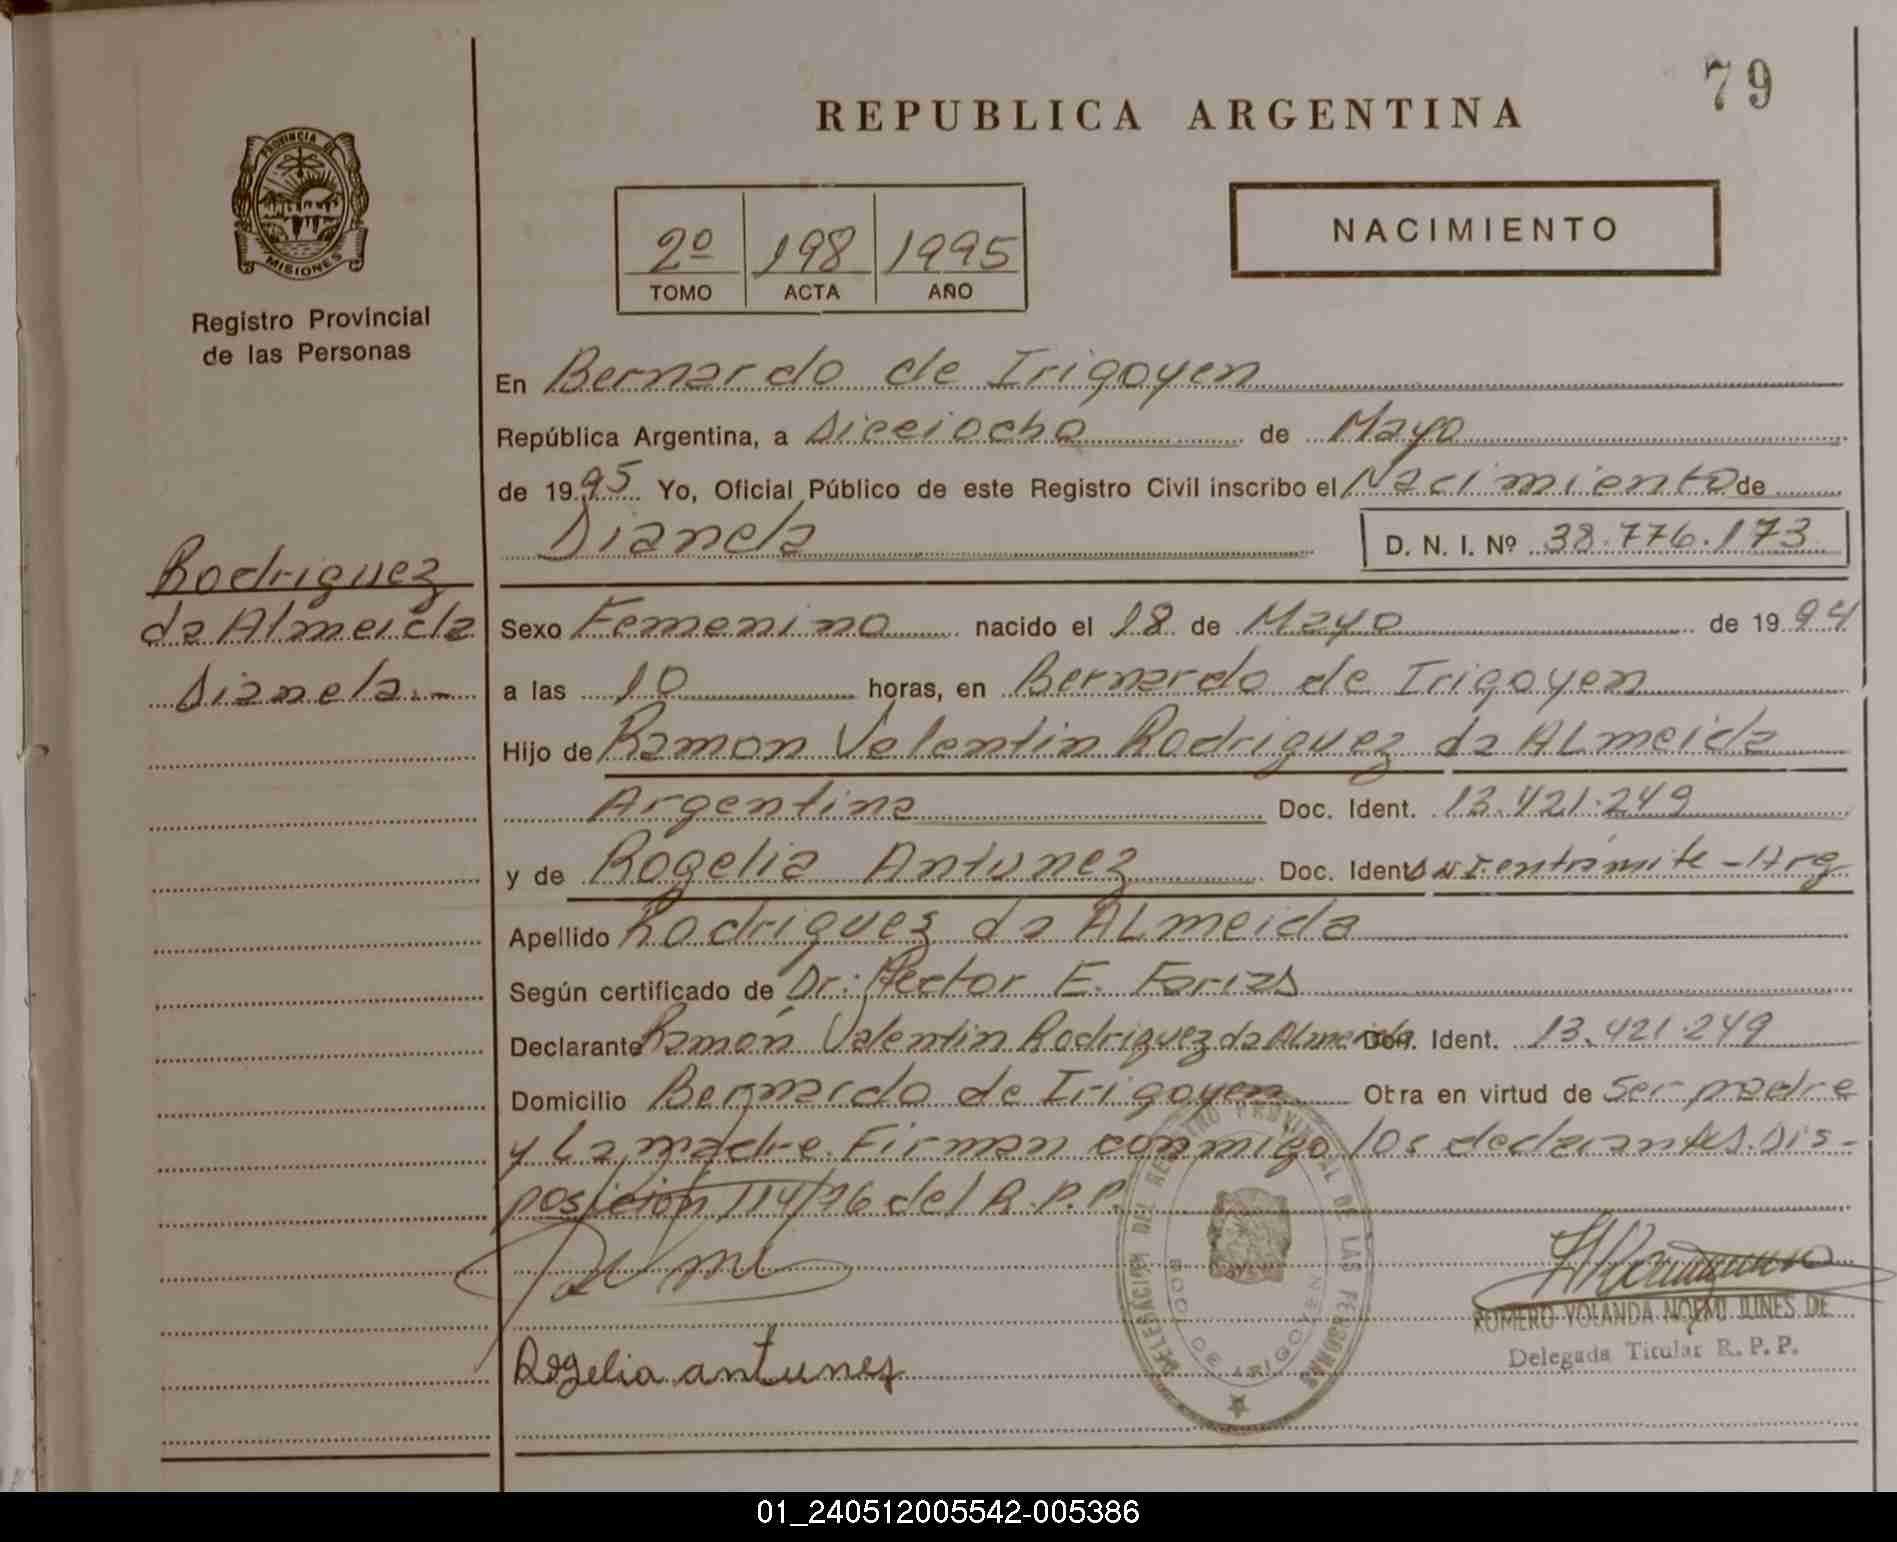 79
REPUBLICA ARGENTINA
PROVINCIA DE
MISIONES
Registro Provincial
de las Personas
2º 198 1995
TOMO ACTA AÑO
NACIMIENTO
En Bernardo de Irigoyen
República Argentina, a Dieciocho de Mayo
de 1995 Yo, Oficial Público de este Registro Civil inscribo el Nacimiento de
Dianela D. N. I. Nº 38.776.173
Rodriguez
da Almeida
Dianela.-
Sexo Femenino nacido el 18 de Mayo de 1994
a las 10 horas, en Bernardo de Irigoyen
Hijo de Ramon Valentin Rodriguez da ALmeida
Argentina Doc. Ident. 13.421.249
y de Rogelia Antunez Doc. Ident. en trámite - Arg
Apellido Rodriguez da ALmeida
Según certificado de Dr: Hector E. Farias
Declarante Ramón Valentin Rodriguez da Almeida Doc. Ident. 13.421.249
Domicilio Bernardo de Irigoyen Otra en virtud de ser padre
y La madre. Firman conmigo los declarantes. Dis-
posición 114/96 del R.P.P.
DELEGACION DEL REGISTRO PROVINCIAL DE LAS PERSONAS
BDO. DE IRIGOYEN
ROMERO YOLANDA NOEMI ILINES DE
Delegada Titular R. P. P.
Rogelia antunez
01_240512005542-005386